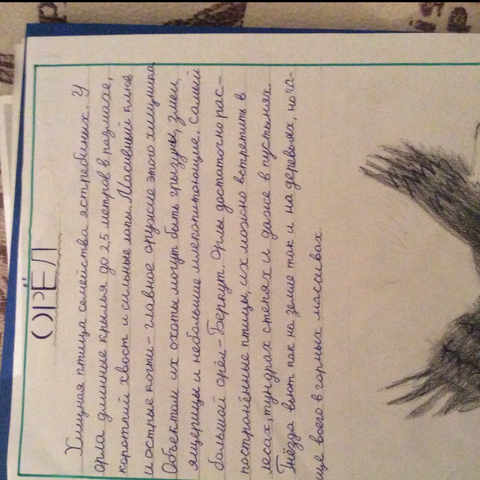 ОРЁЛ
Хищная птица семейства ястребиных. У
орла длинные крылья до 2,5 метров в размахе,
короткий хвост и сильные лапы. Массивный клюв
и острые когти - главное оружие этого хищника
Объектом их охоты могут быть грызуны, змеи,
ящерицы и небольшие млекопитающие. Самый
большой орёл - Беркут. Орлы достаточно рас-
пострaнённые птицы, их можно встретить в
лесах, тундрах степях и даже в пустынях.
Гнёзда вьют как на земле так и на деревьях, но ча-
ще всего в горных массивах.